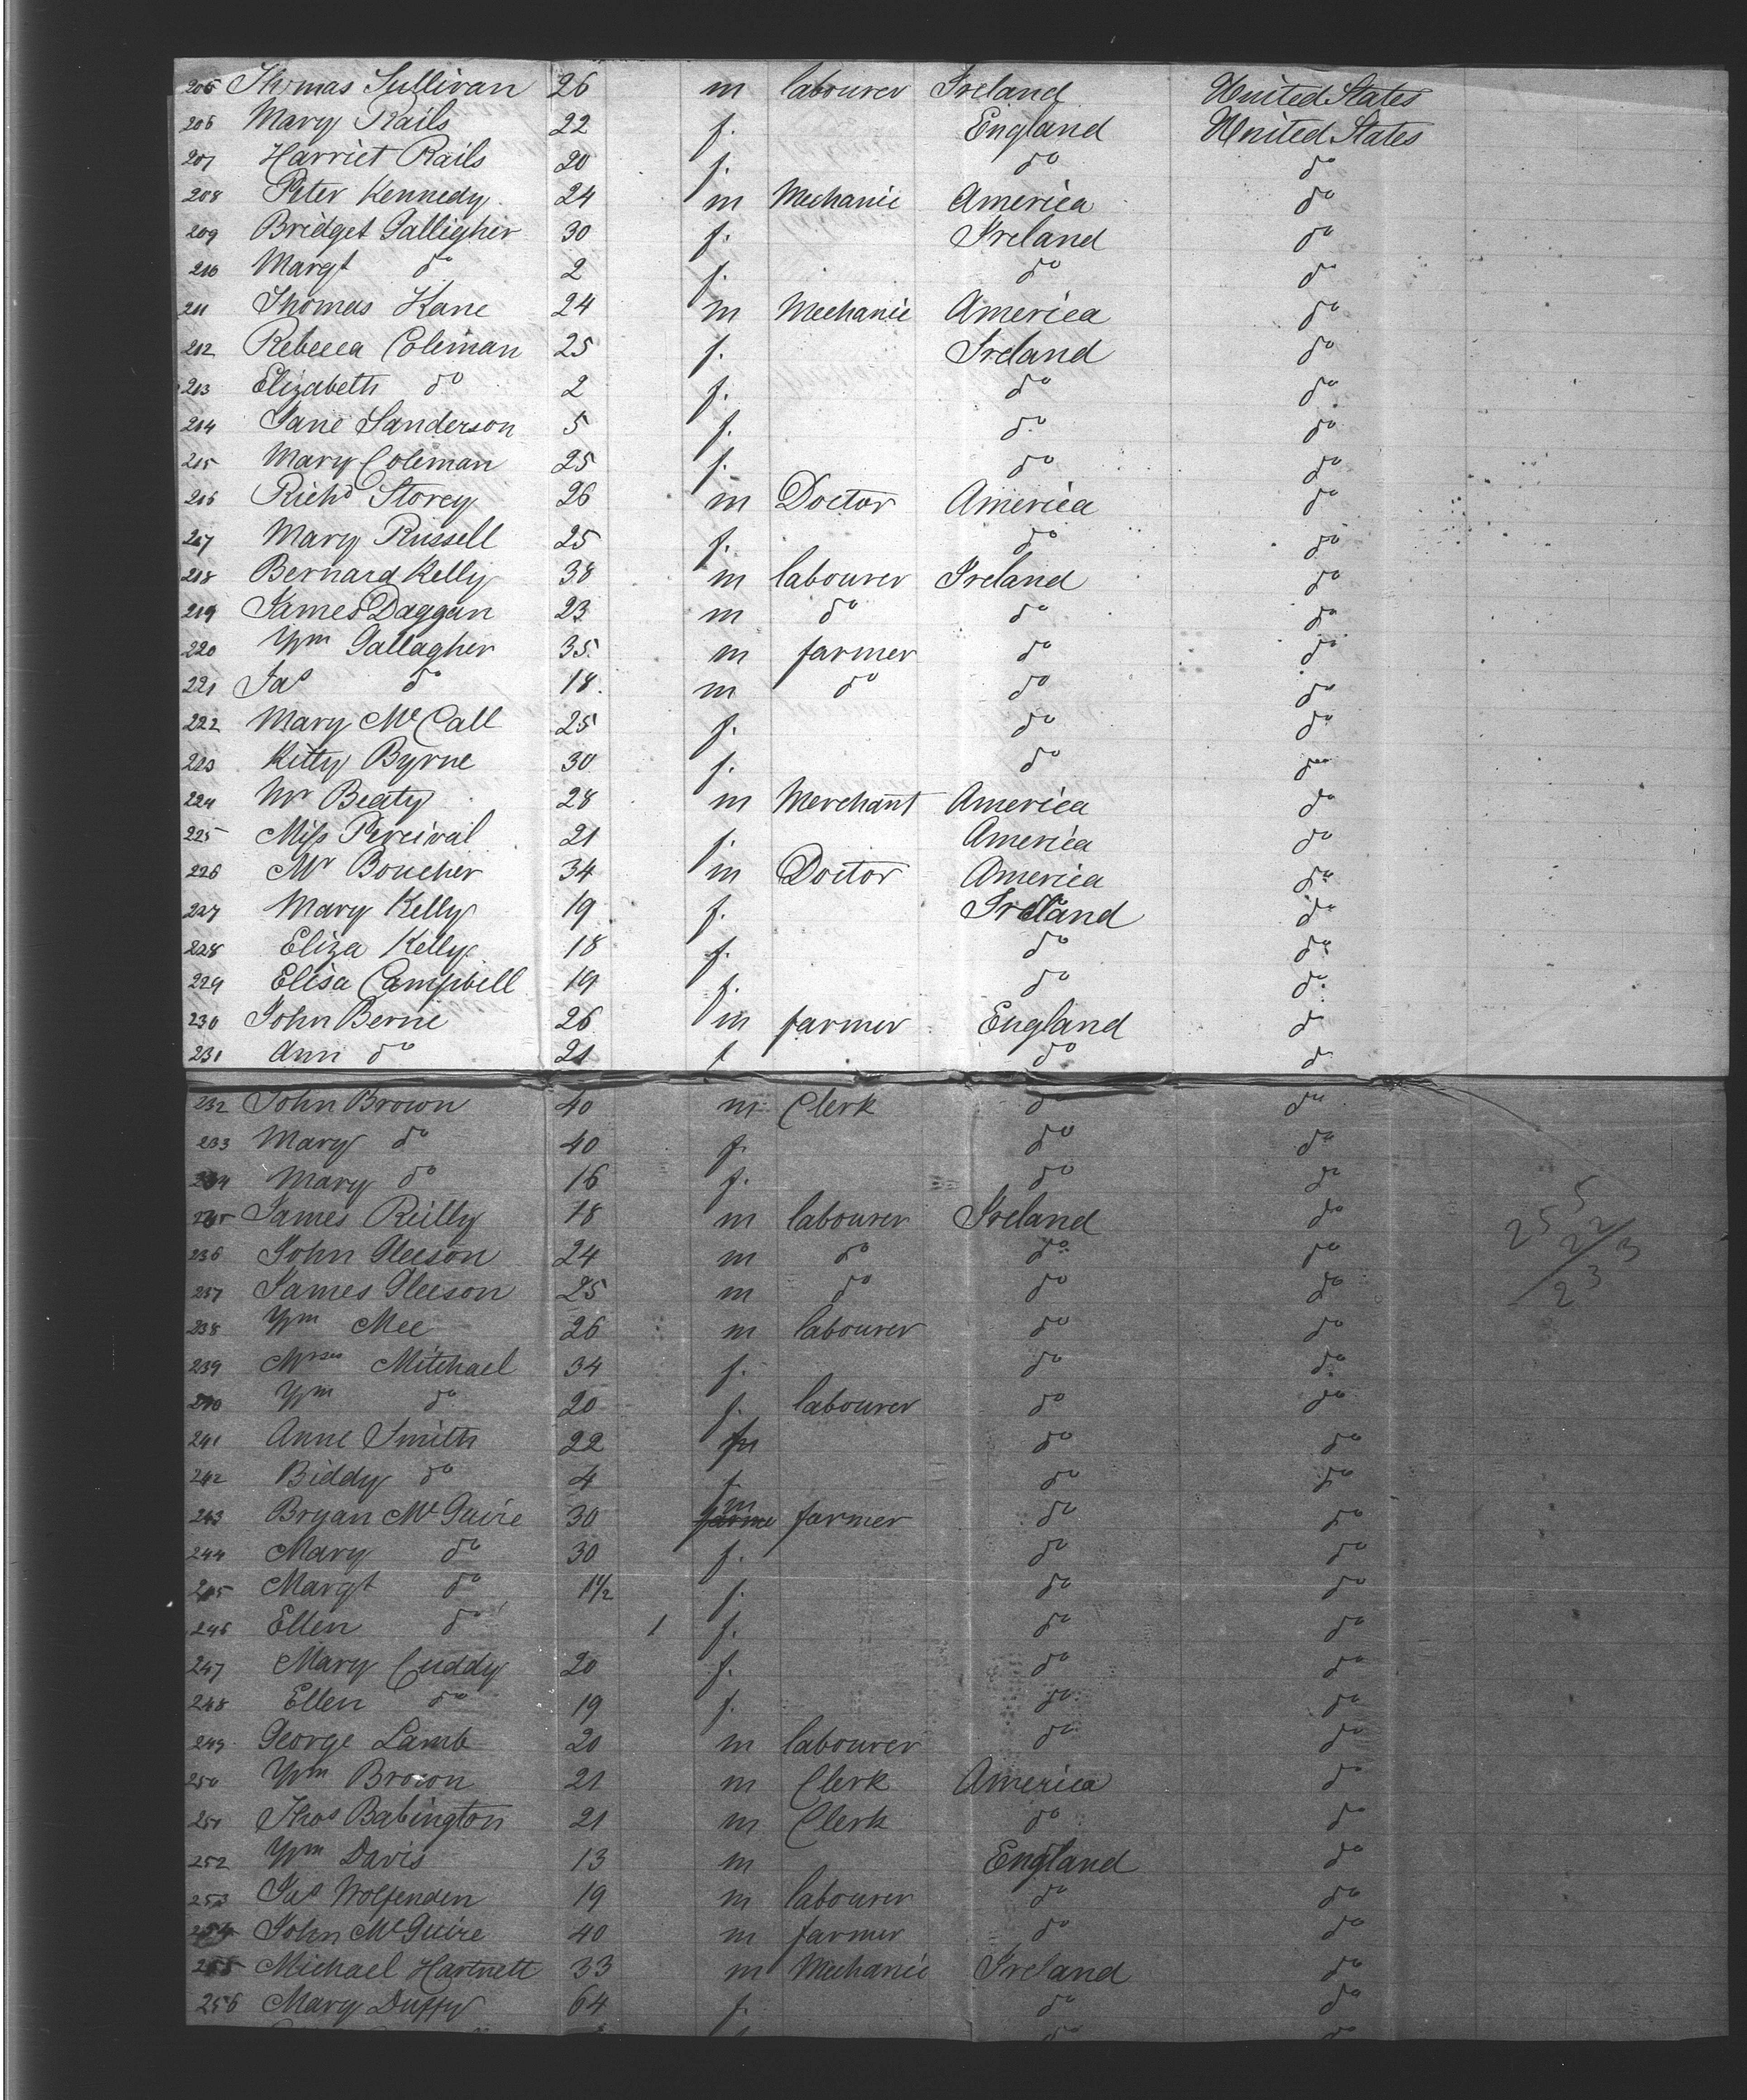 205 Thomas Sullivan 26 m labourer Ireland United States
206 Mary Rails 22 f. England United States
207 Harriet Rails 20 f. do do
208 Peter Kennedy 24 m Mechanic America do
209 Bridget Galligher 30 f. Ireland do
210 Margt do 2 f. do do
211 Thomas Kane 24 m Mechanic America do
212 Rebecca Coleman 25 f. Ireland do
213 Elizabeth do 2 f. do do
214 Jane Sanderson 5 f. do do
215 Mary Coleman 25 f. do do
216 Richd Storey 26 m Doctor America do
217 Mary Russell 25 f. do do
218 Bernard Kelly 38 m labourer Ireland do
219 James Daggan 23 m do do do
220 Wm Gallagher 35 m farmer do do
221 Jas do 18 m do do do
222 Mary Mc Call 25 f. do do
223 Kitty Byrne 30 f. do do
224 Mr Beaty 28 m Merchant America do
225 Miss Percival 21 f. America do
226 Mr Boucher 34 m Doctor America do
227 Mary Kelly 19 f. Ireland do
228 Eliza Kelly 18 f. do do
229 Elisa Campbell 19 f. do do
230 John Berne 26 m farmer England do
231 Ann do 21 f do do
232 John Brown 40 m Clerk do do
233 Mary do 40 f. do do
234 Mary do 16 f. do do
235 James Reilly 18 m labourer Ireland do
236 John Gleeson 24 m do do do
237 James Gleeson 25 m do do do
238 Wm Mee 26 m labourer do do
239 Mitchael 34 f. do do
240 Wm do 20 f. labourer do do
241 Anne Smith 22 do do
242 Biddy do 4 f do do
243 Bryan McGuire 30 m farmer do do
244 Mary do 30 f. do do
245 Margt do 1 1/2 f. do do
246 Ellen do 1 f. do do
247 Mary Cuddy 20 f. do do
248 Ellen do 19 f. do do
249 George Lamb 20 m labourer do do
250 Wm Brown 21 m Clerk America do
251 Thos Babington 21 m Clerk do do
252 Wm Davis 13 m England do
253 Jas Wolfenden 19 m labourer do do
254 John McGuire 40 m farmer do do
255 Michael Hartnett 33 m Mechanic Ireland do
256 Mary Duffy 64 f. do do